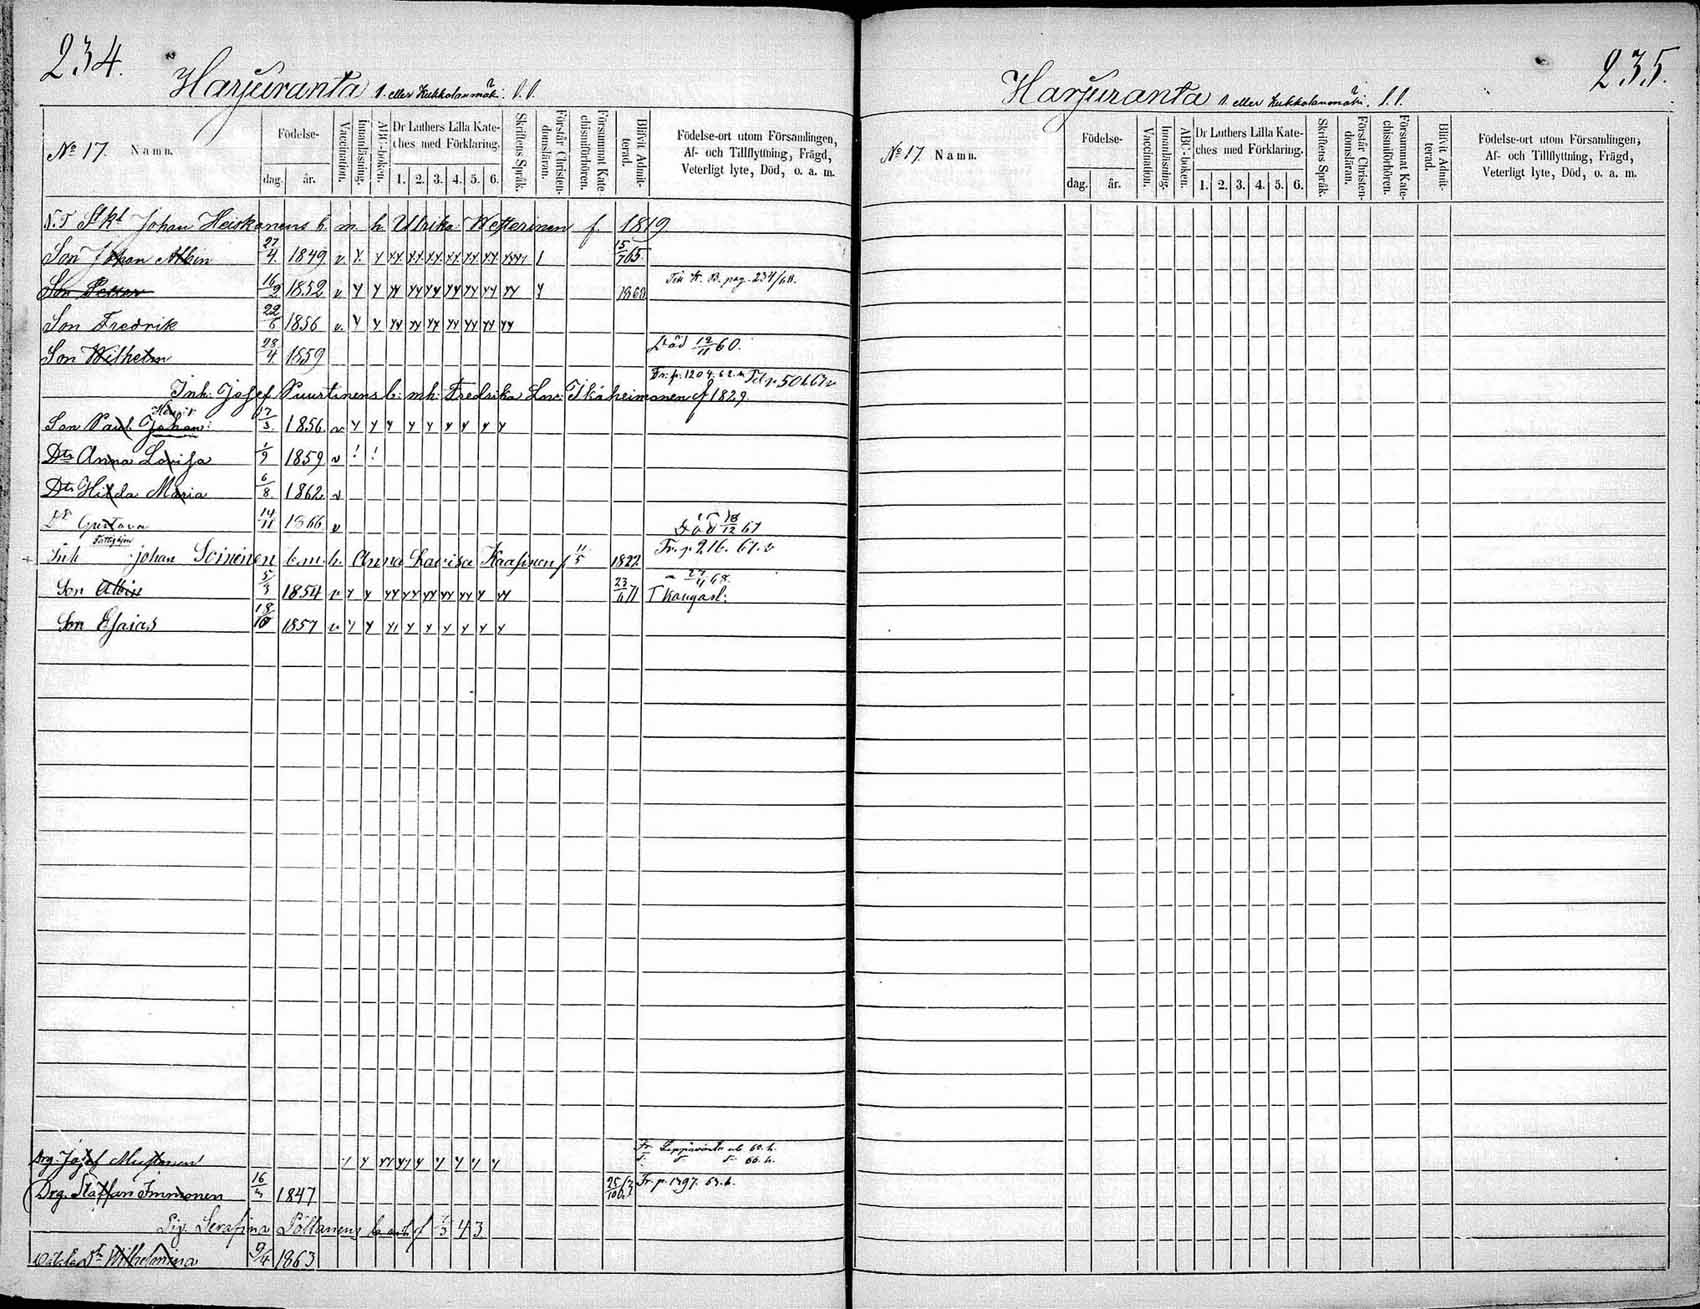 234.
Harjuranta 1. eller Kukkolanmäki. S.S.
№ 17. Namn. Födelse- dag. år. Vaccination. Innanläsning. ABC-boken. Dr Luthers Lilla Kateches med Förklaring. 1. 2. 3. 4. 5. 6. Skriftens Språk. Förstår Christendomsläran. Försummat Katechismiförhören. Blifvit Admitterad. Födelse-ort utom Församlingen, Af- och Tillflyttning, Frägd, Veterligt lyte, Död, o. a. m.
Johan Heiskanens b. m. h. Ulrika Westerinen f. 1819
Son Johan Albin 27/4 1849 v. 15/7 65.
Son Petter 16/2 1852 v 1868 Till K. B. pag. 234/68.
Son Fredrik 22/6 1856 v.
Son Wilhelm 28/4 1859 Död 12/11 60.
Fr. p. 1204. 62.
Inh. Josef Puurtinens b. mh. Fredrika Lov: Ikäheimonen f 1829
Son Paul Johan: 17/3 1856 v
Dtr Anna Lovisa 1/9 1859 v
Dtr Hilda Maria 6/8 1862 v
Dr Gustava 14/11 1866 v Död 18/12 67
Inh Johan Soininen b. m. h. Anna Lovisa Kaasinen f 11/5 1822 Fr. p 216. 67.
Son Albin 5/3 1854 v 23/6 71 T Kangasl:
Son Esaias 18/10 1857 v
Drg. Josef Mustonen Fr. Leppävirta ab 65. h.
Drg. Staffan Immonen 16/3 1847 Fr p. 1397. 63. h.
Pig. Serafina Pöllänens f 43
Dtr Wilhelmina 9/4 1863
235.
Harjuranta 1. eller Kukkolanmäki. S.S.
№ 17. Namn. Födelse- dag. år. Vaccination. Innanläsning. ABC-boken. Dr Luthers Lilla Kateches med Förklaring. 1. 2. 3. 4. 5. 6. Skriftens Språk. Förstår Christendomsläran. Försummat Katechismiförhören. Blifvit Admitterad. Födelse-ort utom Församlingen, Af- och Tillflyttning, Frägd, Veterligt lyte, Död, o. a. m.